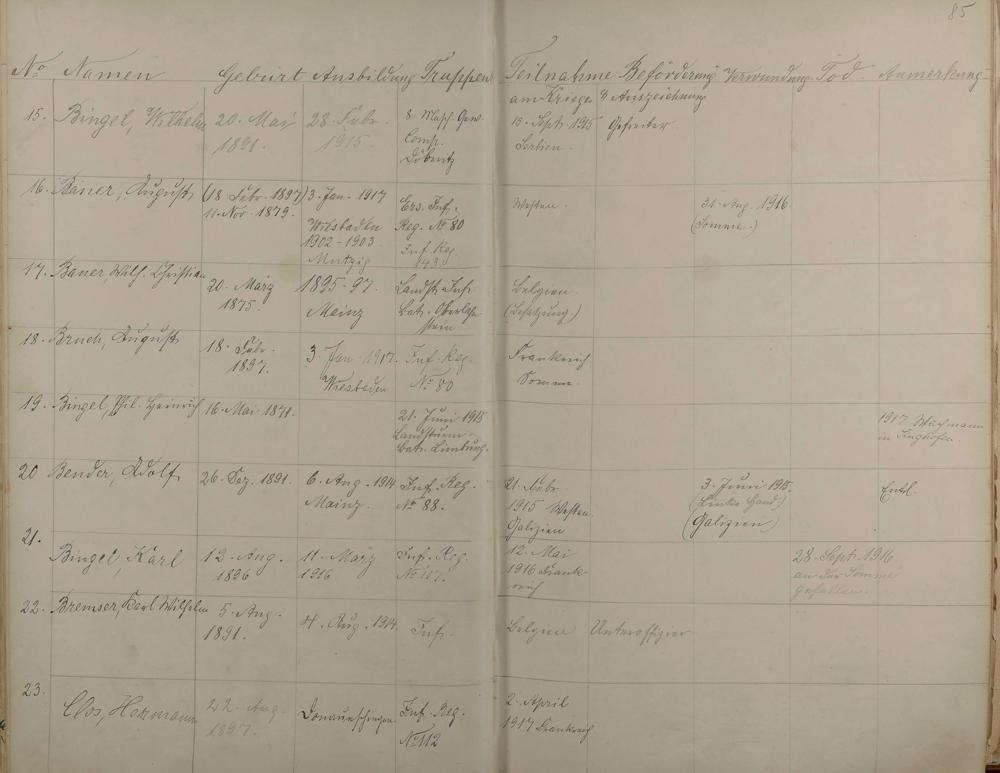 85
No Namen Geburt Ausbildung Truppen Teilnahme Beförderung Verwundung Tod. Anmerkung
am Kriege & Auszeichnung
15. Bingel, Wilhelm 20. Mai 1891. 28. Febr. 1915. 8 Masch. Gew. Comp. Döberitz 15. Sept. 1915 Serbien. Gefreiter
16. Bauer, August (18 Febr. 1897) 11. Nov. 1879. 3. Jan. 1917 Wiesbaden 1902-1903 Mutzig Ers. Inf. Reg. No 80 Inf. Reg. 143 Westen. 31. Aug. 1916 (Somme.)
17. Bauer, Wilh. Christian 20. März 1875. 1895-97. Mainz Landst. Inf. Bat. Oberlahnstein Belgien. (Besatzung)
18. Bruch, August 18. Febr. 1897. 3. Jan. 1917. Wiesbaden Inf. Reg. No 80 Frankreich Somme.
19. Bingel, Phil. Heinrich 16. Mai 1871. 21. Juni 1915 Landsturm- Bat. Limburg. 1917 Wachmann in Singhofen.
20 Bender, Adolf 26. Dez. 1891. 6. Aug. 1914 Mainz. Inf. Reg. No 88. 21. Febr. 1915 Westen Galizien 3. Juni 1915. (Linke Hand) (Galizien) Entl.
21. Bingel, Karl 12. Aug. 1896 11. März 1916 Inf. Reg. No 117. 12. Mai 1916 Frankreich 28. Sept. 1916 an der Somme gefallen.
22. Bremser, Karl Wilhelm 5. Aug. 1891. 4. Aug. 1914. Inf. Belgien Unteroffizier
23. Clos, Hermann 22. Aug. 1897. Donaueschingen Inf. Reg. No 112 2. April 1917 Frankreich